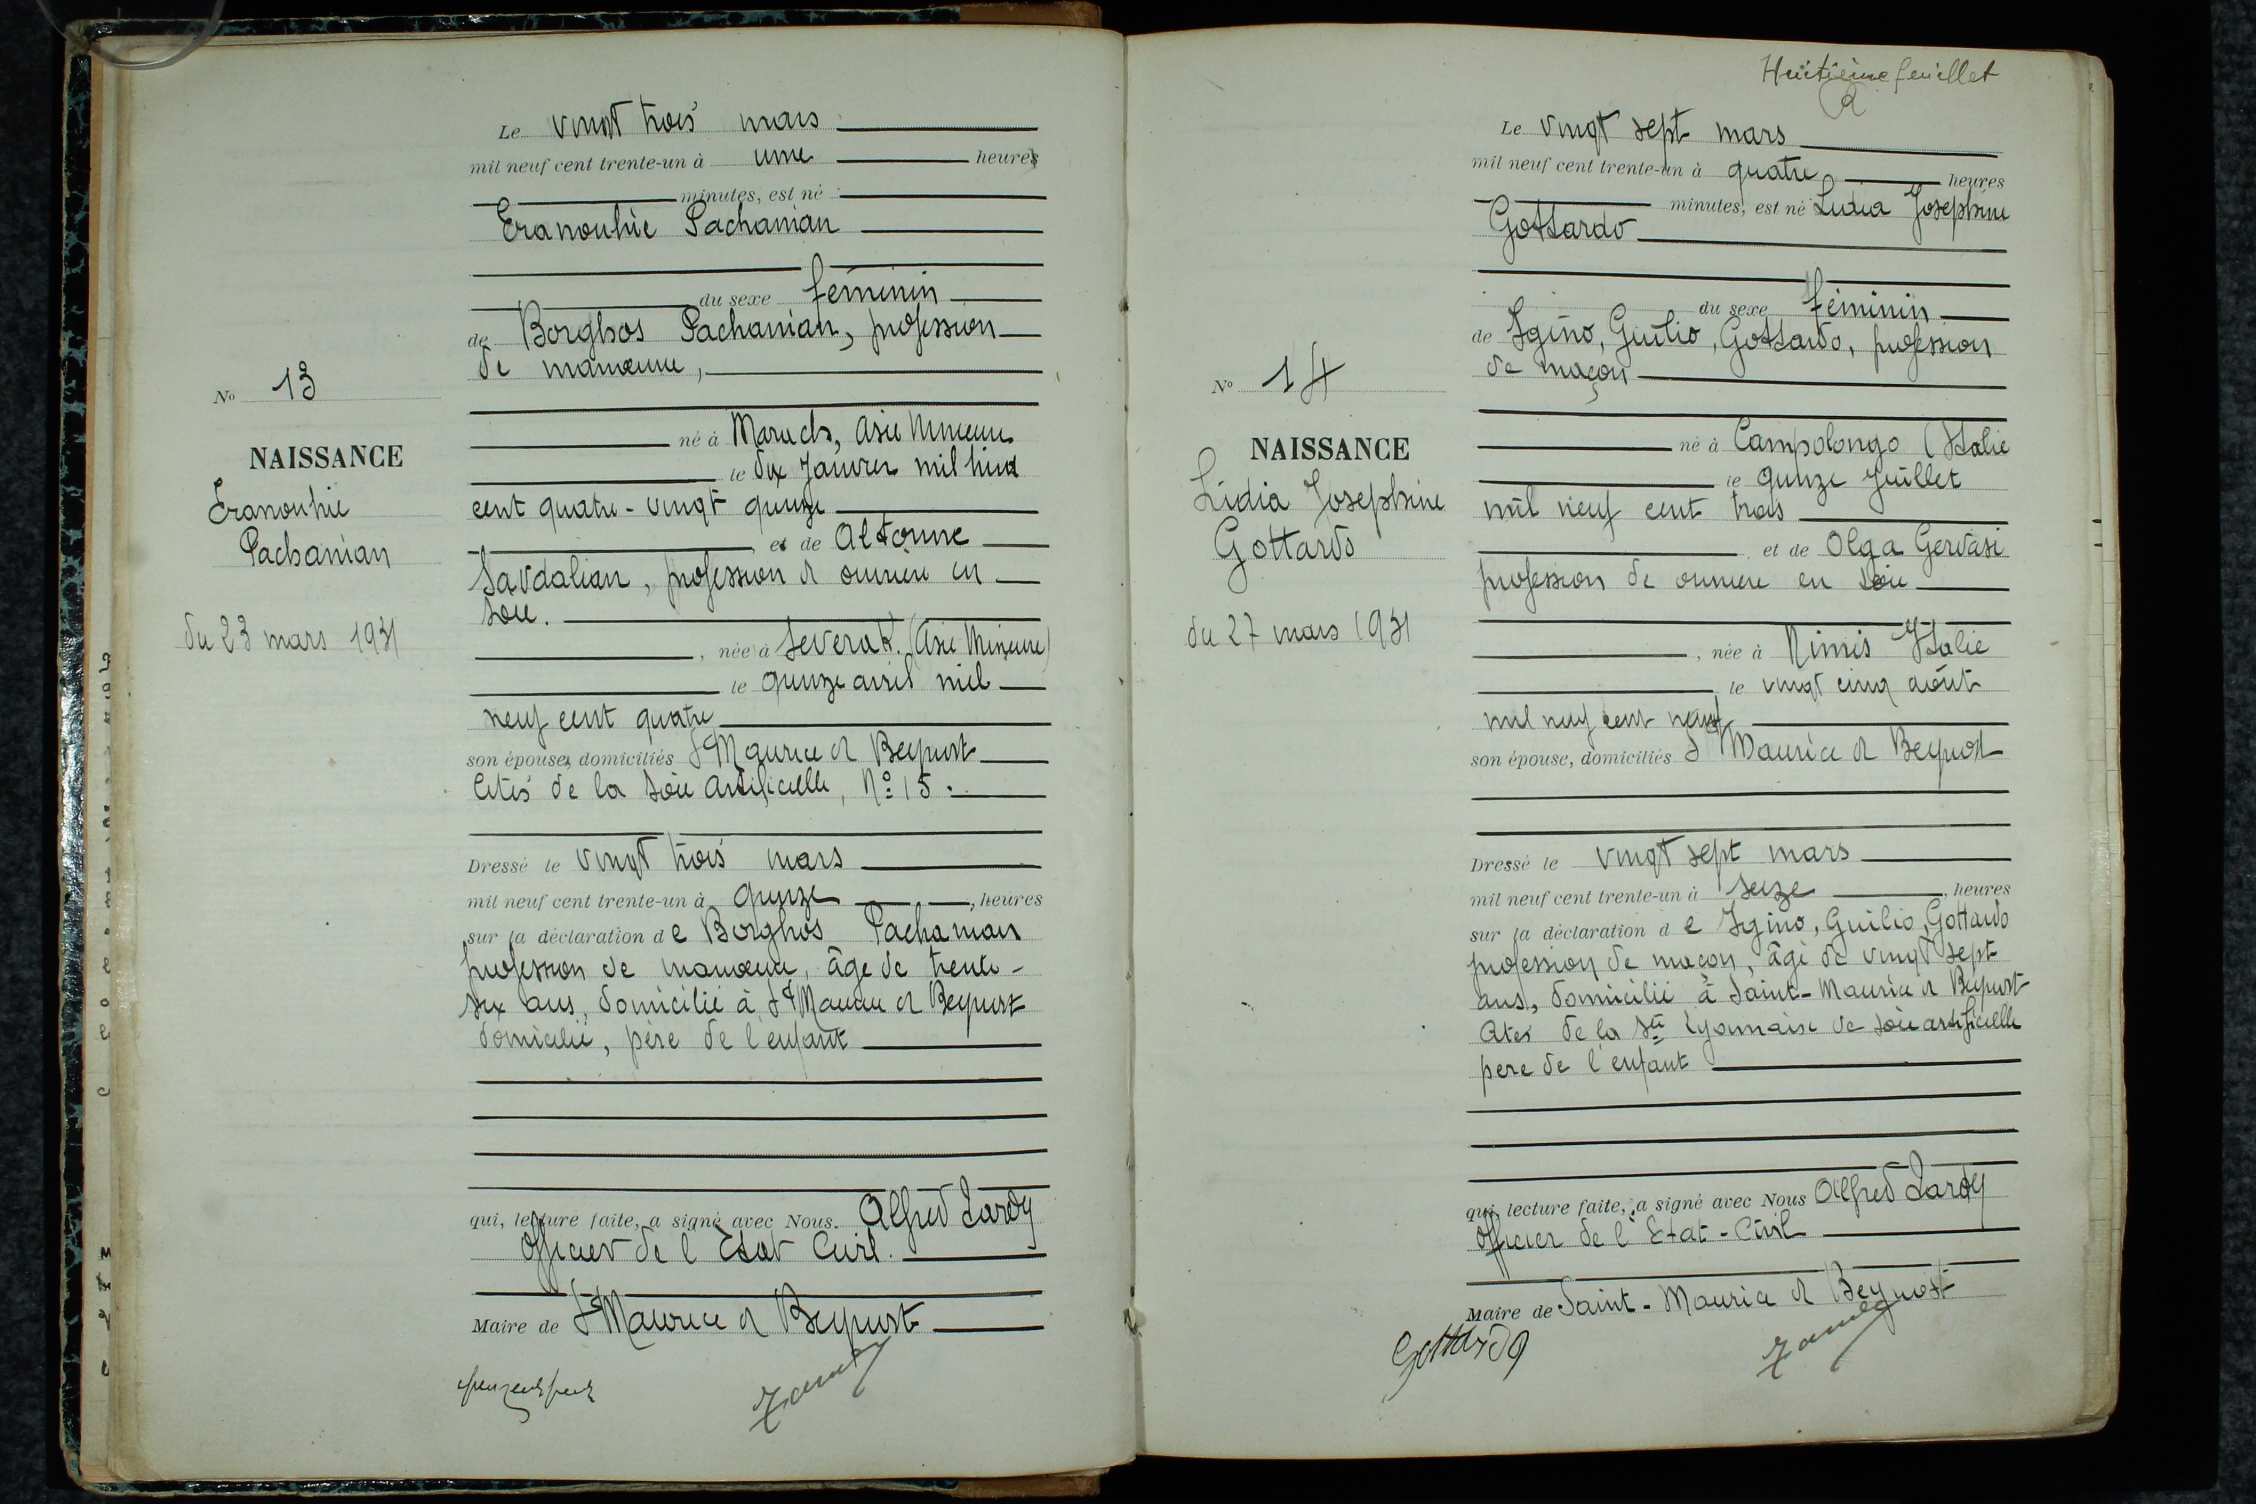 Le vingt trois mars
mil neuf cent trente-un à une heure
minutes, est né
Eranouhie Pachanian
du sexe féminin
de Borghos Pachanian, profession
de manœuvre,
No 13
né à Marach, Asie Mineure
NAISSANCE
le dix Janvier mil huit
Eranouhie
cent quatre-vingt quinze
et de Altoune
Pachanian
Savdalian, profession d ouvrière en
soie.
du 23 mars 1931
, née à Severak (Asie Mineure)
le quinze avril mil
neuf cent quatre
son épouse, domiciliés St Maurice d Beynost
Cités de la soie artificielle, No 15.
Dressé le vingt trois mars
mil neuf cent trente-un à quinze, heures
sur la déclaration de Borghos Pachanian
profession de manœuvre, âgé de trente-
six ans, domicilié à St Maurice d Beynost
domicilié, père de l'enfant
qui, lecture faite, a signé avec Nous. Alfred Jardy
Officier de l'Etat Civil.
Maire de St Maurice d Beynost
Huitième feuillet
Le vingt sept mars
mil neuf cent trente-un à quatre heures
minutes, est né Lidia Josephine
Gottardo
du sexe féminin
de Igino, Giulio, Gottardo, profession
de maçon
No 14
né à Campolongo (Italie
NAISSANCE
le quinze Juillet
Lidia Josephine
mil neuf cent trois
Gottardo
et de Olga Gervasi
profession de ouvrière en soie
du 27 mars 1931
, née à Nimis Italie
le vingt cinq août
mil neuf cent neuf
son épouse, domiciliés St Maurice d Beynost
Dressé le vingt sept mars
mil neuf cent trente-un à seize, heures
sur la déclaration de Igino, Guilio, Gottardo
profession de maçon, âgé de vingt sept
ans, domicilié à Saint-Maurice d Beynost
Cités de la Sté Lyonnaise de soie artificielle
père de l'enfant
qui, lecture faite, a signé avec Nous Alfred Jardy
Officier de l'Etat-Civil
Maire de Saint-Maurice d Beynost
Gottardo